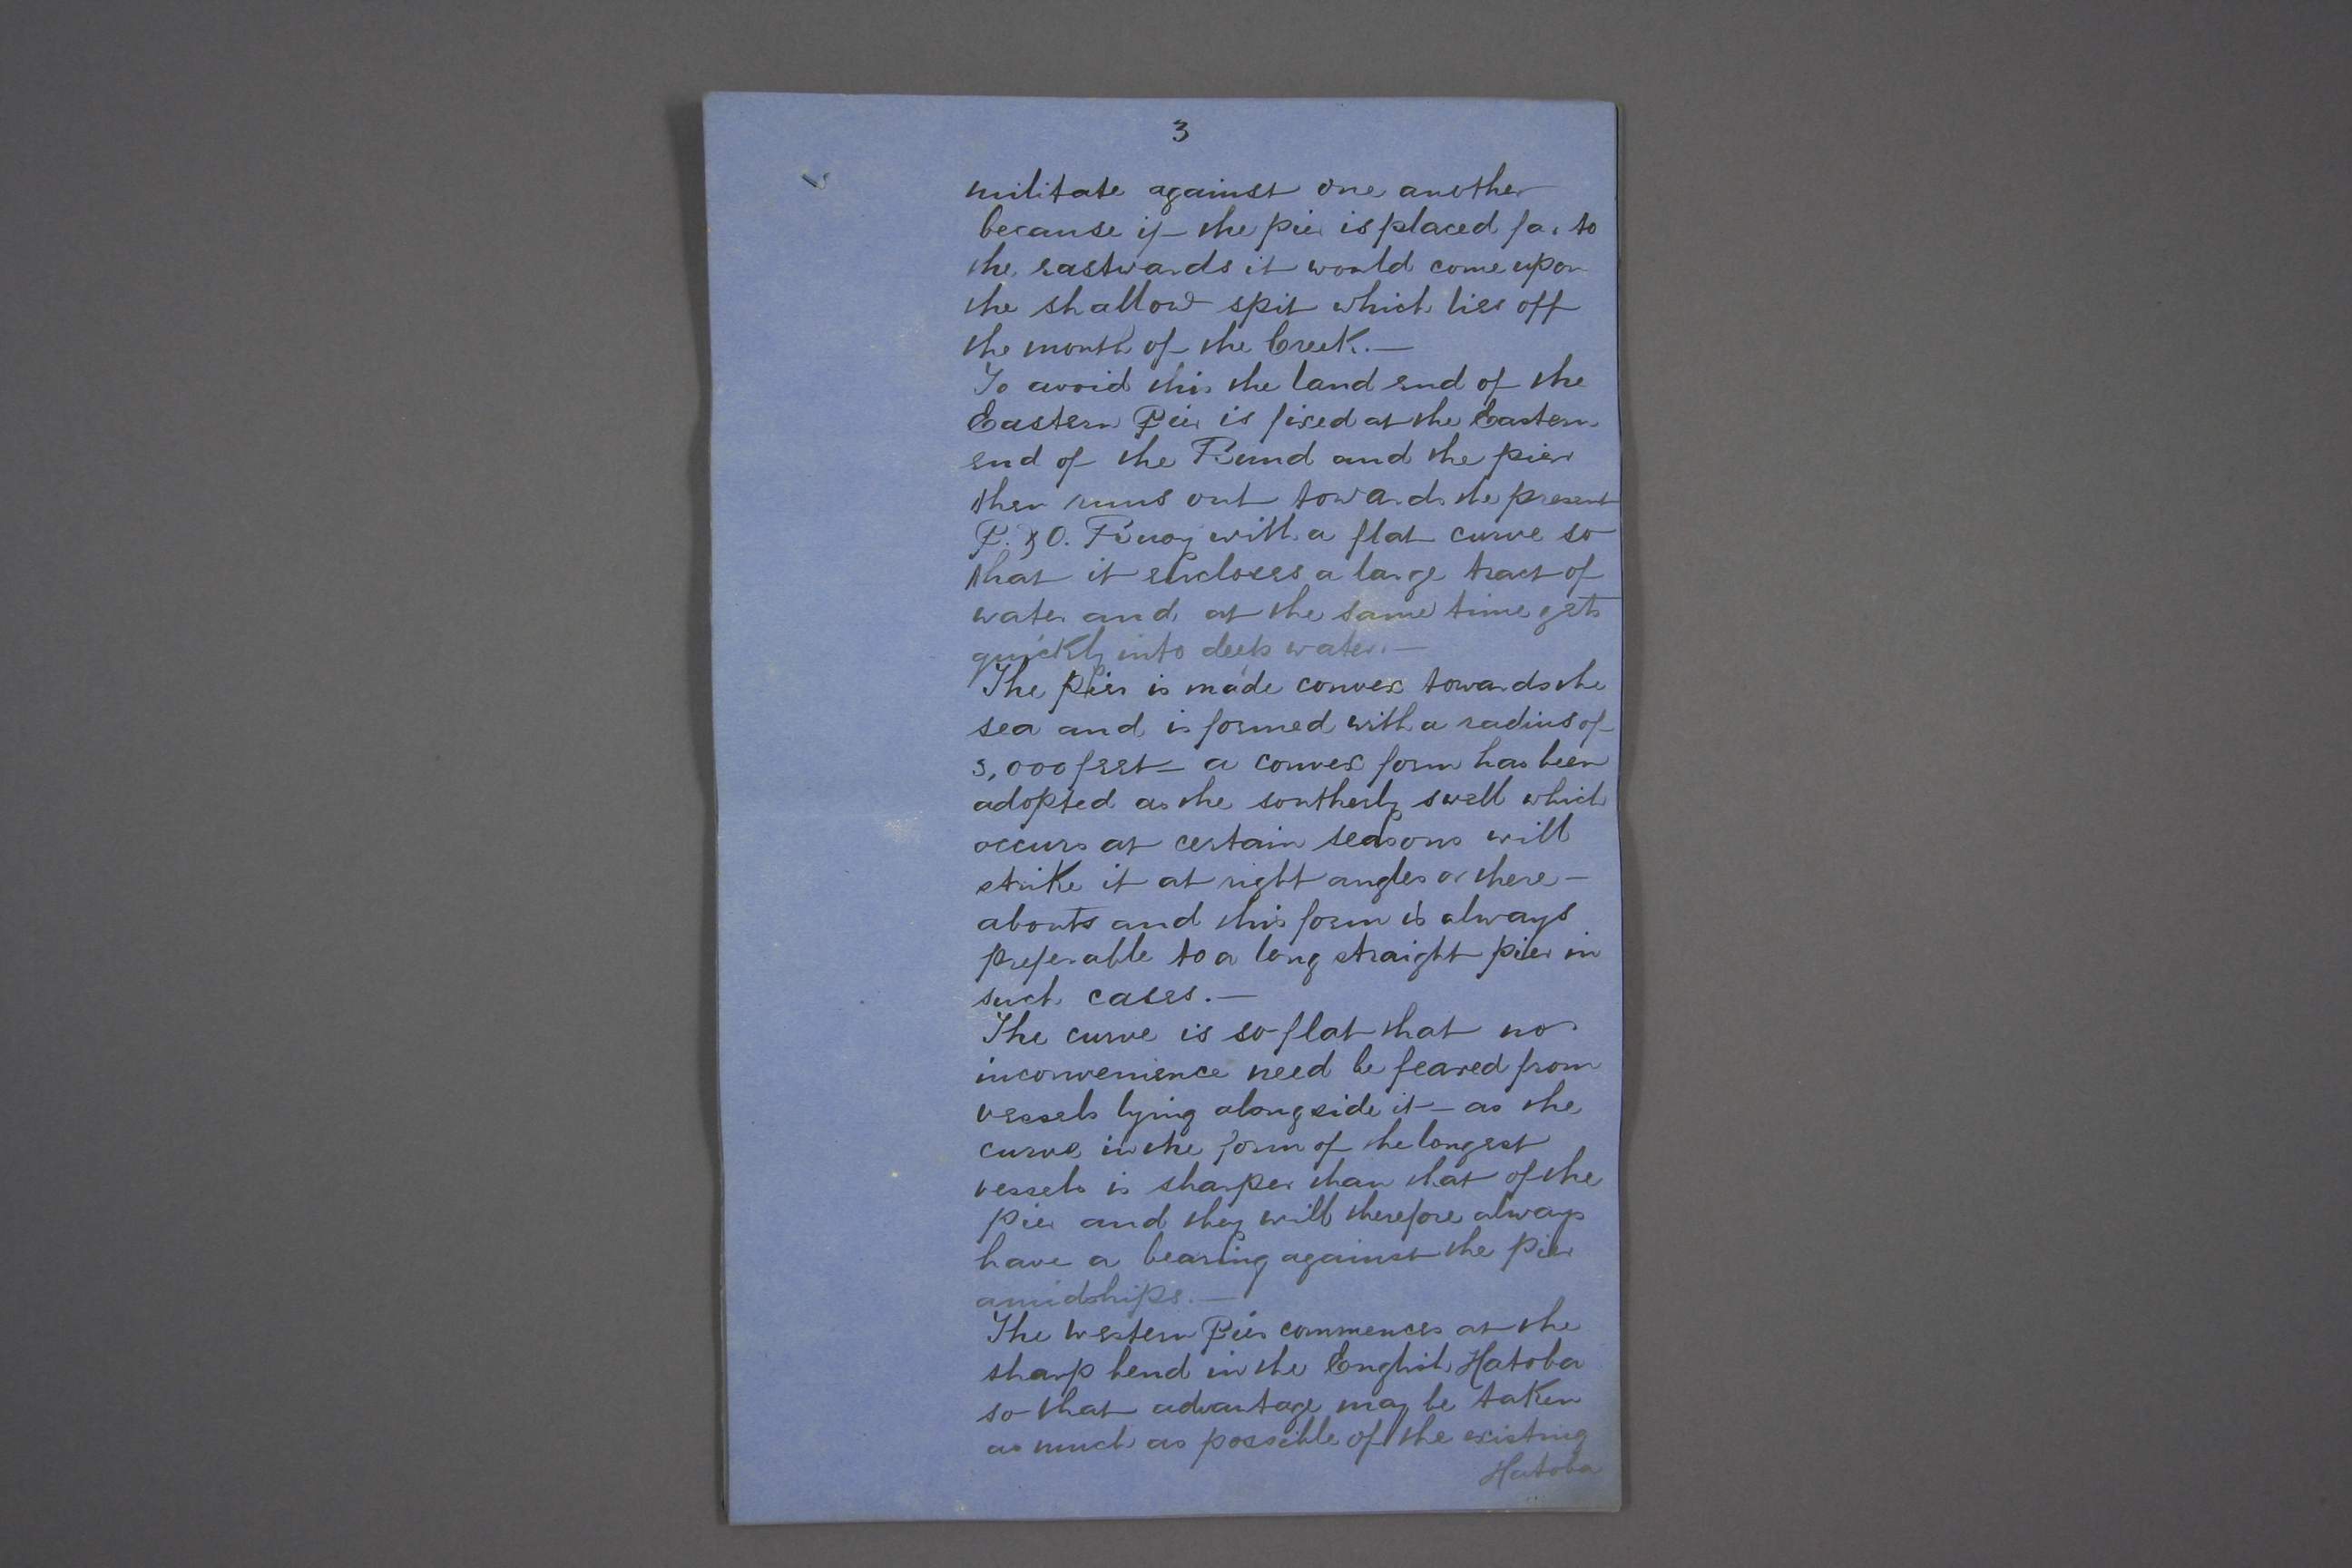 3
militate against one another
because if the pier is placed far to
the eastwards it would come upon
the shallow spit which lies off
the mouth of the Creek.—
To avoid this the land end of the
Eastern Pier is fixed at the Eastern
end of the Bund and the pier
then runs out towards the present
P. & O. Buoy with a flat curve so
that it encloses a large tract of
water and at the same time gets
quickly into deep water.—
The Pier is made convex towards the
sea and is formed with a radius of
5,000 feet — a convex form has been
adopted as the southerly swell which
occurs at certain seasons will
strike it at right angles or there-
abouts and this form is always
preferable to a long straight pier in
such cases.—
The curve is so flat that no
inconvenience need be feared from
vessels lying alongside it — as the
curve in the form of the longest
vessels is sharper than that of the
pier and they will therefore always
have a bearing against the pier
amidships.—
The Western Pier commences at the
sharp bend in the English Hatoba
so that advantage may be taken
as much as possible of the existing
Hatoba